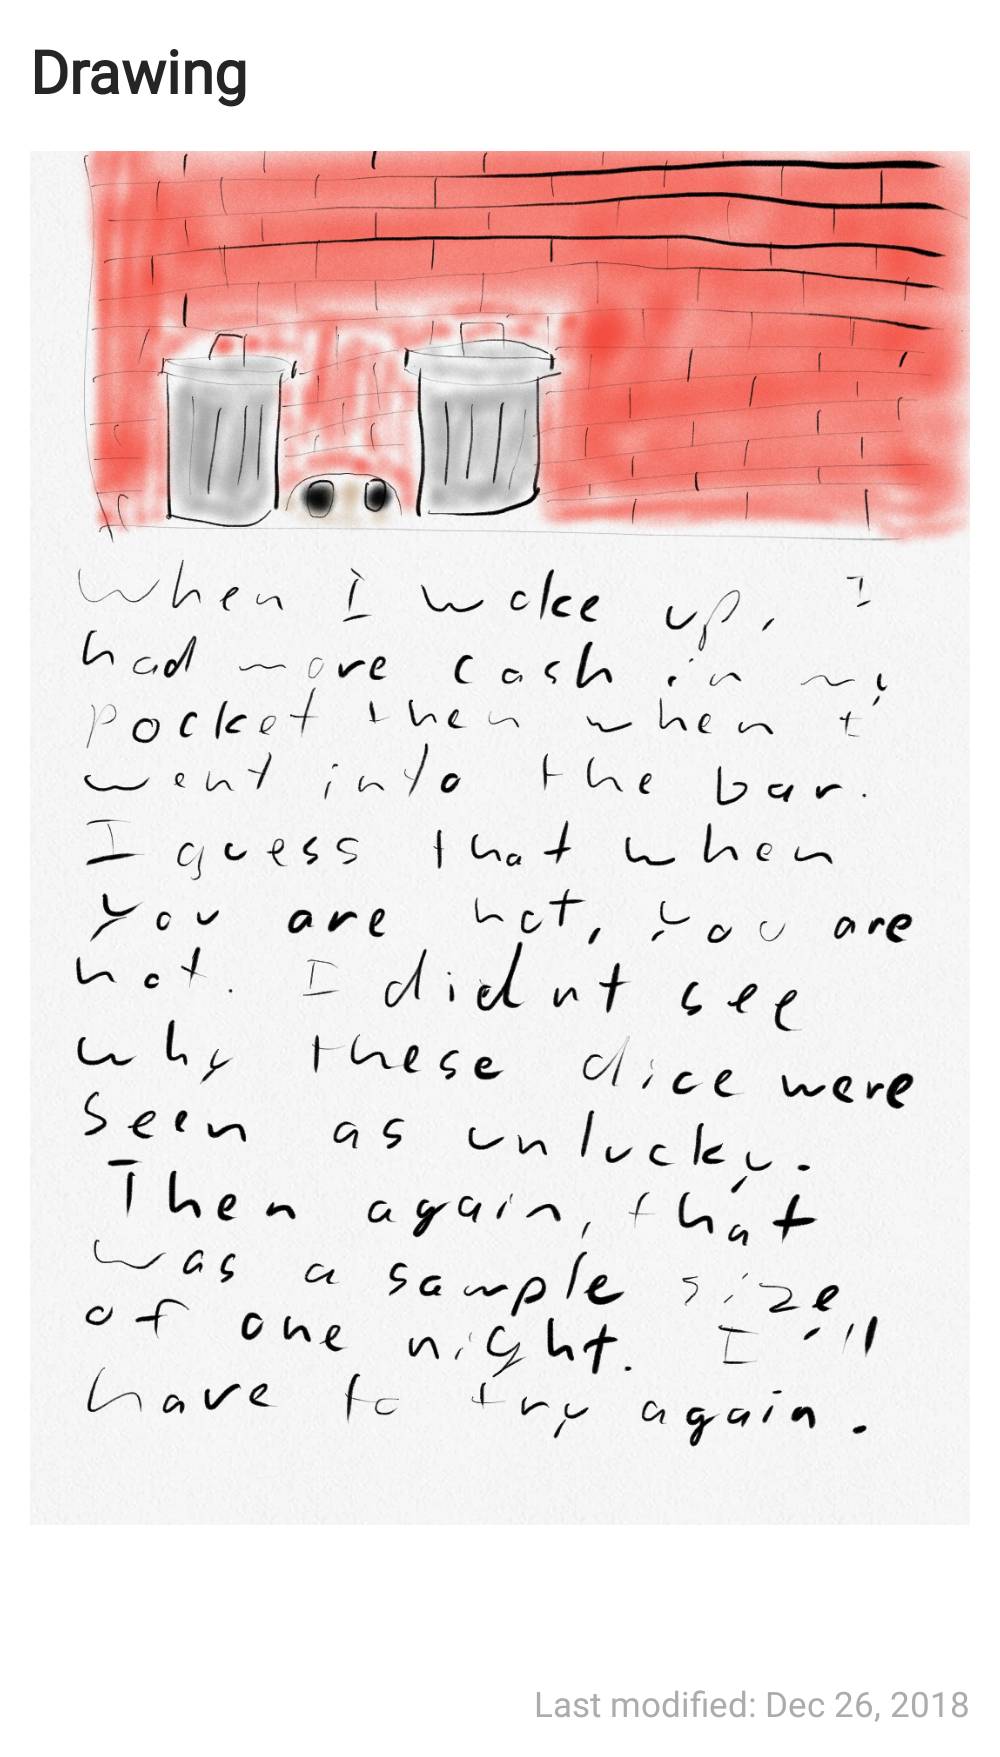 Drawing
When I woke up, I
had more cash in my
pocket then when I
went into the bar.
I guess that when
you are hot, you are
hot. I didnt see
why these dice were
seen as unlucky.
Then again, that
was a sample size
of one night. I'll
have to try again.
Last modified: Dec 26, 2018